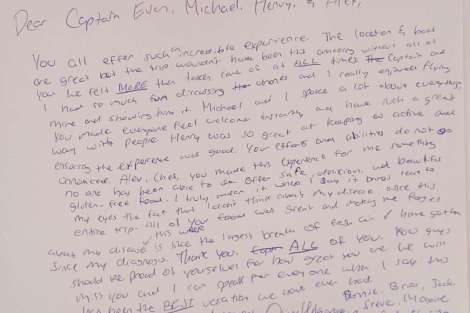 Dear Captain Evan, Michael, Henry, &
You all offer such incredible experience. The location & boat
are great but the trip wouldn't have been this amazing without all of
you. We felt MORE than taken care of at ALL times. Captain
I had so much fun discussing drones and I really enjoyed flying
mine and showing him it. Michael and I spoke a lot about everything,
You made everyone feel welcome instantly and have such a great
way with people. Henry was so great at keeping us active and
ensuring the experience was good. Your efforts and abilities do not go
unnoticed. Alex, Chef, you made this experience for me something
no one has been able to do. Offer safe, delicious, and beautiful
gluten-free food. I truly mean it when I say it brings tears to
my eyes the fact that I didn't think about my disease once this
entire trip- all of your food was great and making me forget
this week
about my disease is like the largest breath of fresh air I have gotten
since my diagnosis. Thank you. ALL of you. You guys
should be proud of yourselves for how great you are. We will
miss you and I can speak for everyone when I say this
has been the BEST vacation we have ever had.
Bonnie, Brian, Jack,
Steve,